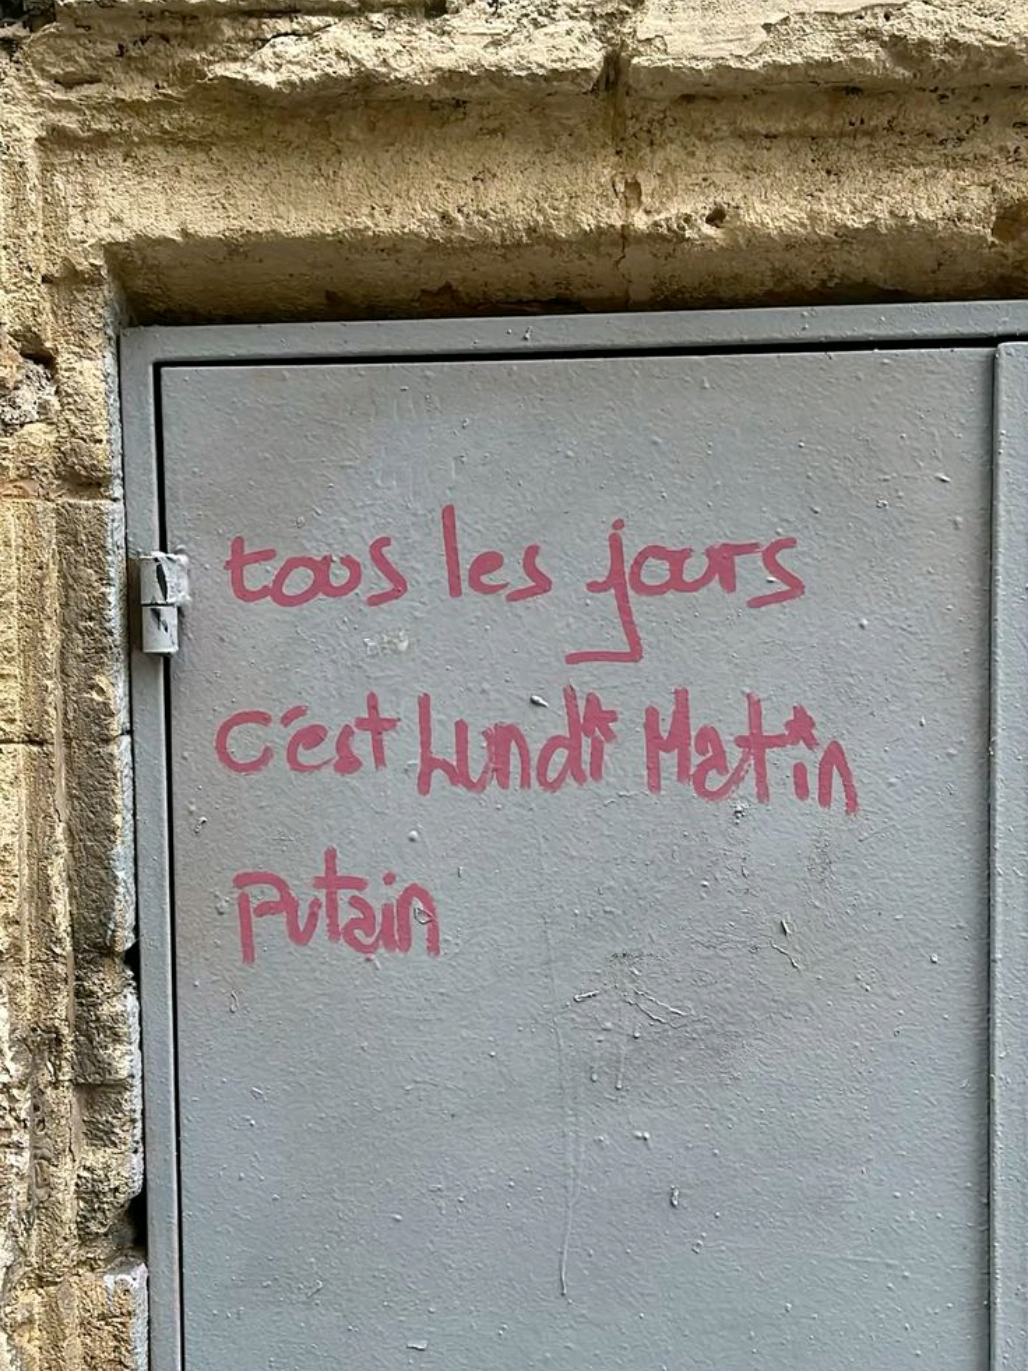 tous les jours
c'est Lundi Matin
Putain